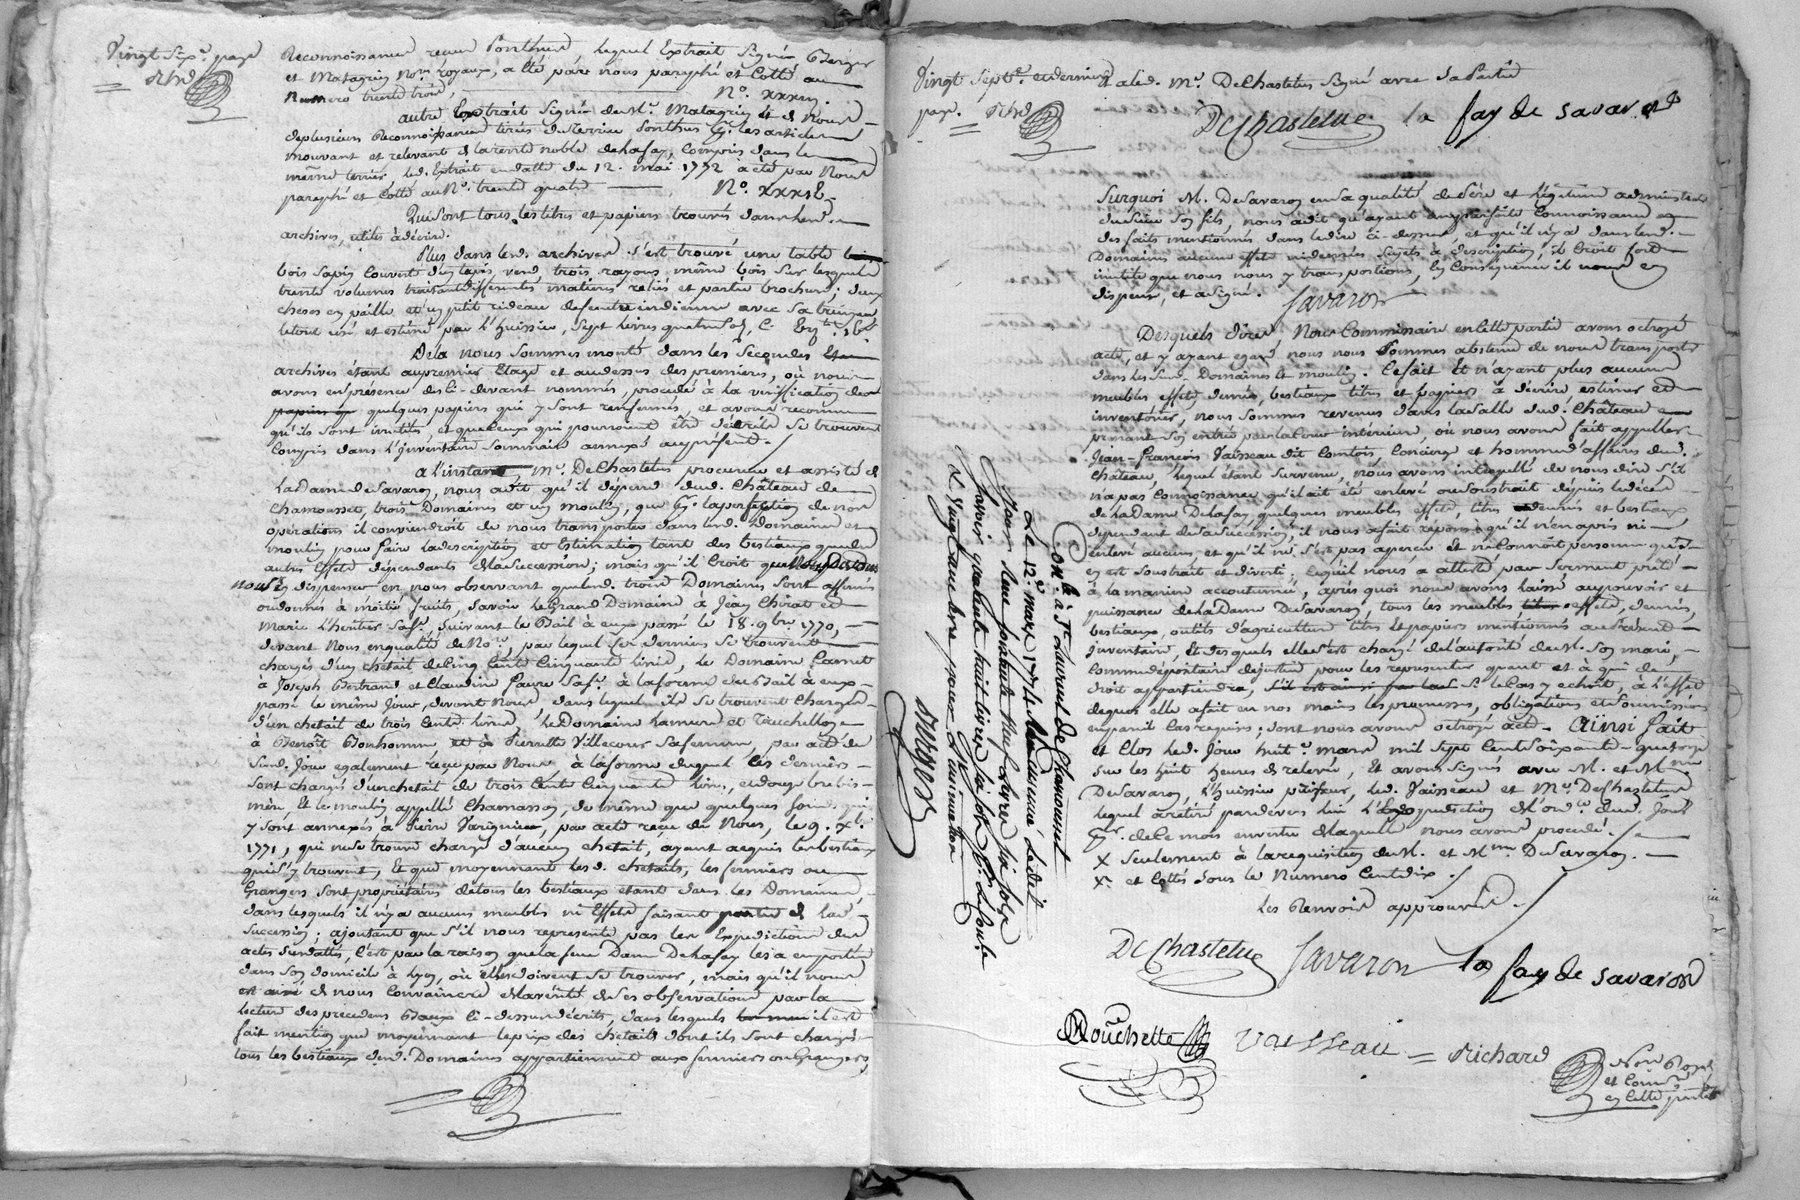 Vingt Six.e page
Rhd
Reconnoissances reçue Ponthus, lequel Extrait Signé Berger
et Matagrin No.res royaux, a été pare nous paraphé et Cotté au
Numero trente trois, N.o XXXIII.
autre Extrait Signé de M.e Matagrin et de Nous
de plusieurs Reconnoissances tirées du terrier Ponthus des articles
mouvant et relevant de la rente noble de lafay, Compris dans le
même terrier, led. Extrait en datte du 12. mai 1772 à été par Nous
paraphé et Cotté au N.o trente quatre N.o XXXIV.
Qui sont tous les titres et papiers trouvés dans lesd.
archives, utiles à décrire.
Plus dans lesd. archives s'est trouvé une table
bois Sapin Couvert d'un tapis verd, trois rayons même bois Sur lesquels
trente volumes traitant differentes matieres reliés et partie brochure; deux
cheses en paille et un petit rideau de fenetre indienne avec Sa tringue
le tout usé et estimé par l'huissier, Sept livres quatre Sols,
De la nous Sommes monté dans les Secondes
archives étant au premier Etage et audessus des premieres, où nous
avons en présence des Ci-devant nommés, procedé à la vérification des
quelques papiers qui y Sont renfermés, et avons reconnu
qu'ils sont inutiles et que Ceux qui pourroient être décrits Se trouvent
Compris dans l'inventaire Sommaire annexé au présent.
a l'instant M.e DeChastelus procureur et assisté de
La Dame de Savaron, nous a dit qu'il dépend dud. Château de
Chamousset, trois Domaines et un moulin, que pour la perfection de nos
opérations il conviendroit de nous transporter dans lesd. Domaines et
moulin pour faire la description et Estimation tant des bestiaux que des
autres Effets dépendants de la Succession; mais qu'il Croit que Nous pouvons
nous en dispenser en nous observant que lesd. trois Domaines Sont affermés
ou donnés à moitié fruits, Savoir le Grand Domaine à Jean Chirat et
Marie L'heritier Sa f.e, Suivant le Bail à eux passé le 18. 9bre 1770,
devant Nous en qualité de No.re, par lequel Ces derniers Se trouvent
chargés d'un chetail de Cinq Cents Cinquante livres, le Domaine Carret
à Joseph Bertrand et Claudine Faure Sa f.e à la forme du Bail à eux
passé le même Jour, devant Nous, dans lequel ils Se trouvent Chargés
d'un chetail de trois Cents livres, le Domaine
à Benoît Bonhomme et à Pierrette Villecour Sa femme, par acte du
Susd. Jour également reçu par Nous, à la forme duquel Ces derniers
Sont chargés d'un chetail de trois Cents Cinquante livres, et douze brebis
mere. Et le moulin appellé Chamasson, de même que quelques fonds qui
y Sont annexés à Pierre Varignier, par acte reçu de Nous, le 9. Xbre
1771, qui ne Se trouve chargé d'aucun chetail, ayant acquis les bestiaux
qui s'y trouvent, Et que moyennant lesd. chetails, les fermiers ou
Grangers Sont propriétaires de tous les bestiaux étant dans les Domaines,
dans lesquels il n'y a aucuns meubles ni Effets faisant partie de lad.
Succession; ajoutant que S'il nous represente pas les Expeditions des
actes Susdattés, C'est par la raison que la feue Dame De lafay les a emportés
dans Son domicile à Lyon, où elles doivent Se trouver, mais qu'il nous
est aisé de nous Convaincre de la vérité de Ses observations par la
lecture des precedens Baux Ci-dessus décrits, dans lesquels il est
fait mention que moyennant le prix des chetails dont ils Sont chargés
tous les bestiaux desd. Domaines appartiennent aux fermiers ou Grangers
Vingt Sept.e et derniere
page. Rhd
Et a led. M.e DeChastelus Signé avec Sa Partie
DeChastelus la fay de Savaron
Surquoi M. DeSavaron en Sa qualité de Pere et Légitime administrateur
du Sieur Son fils, nous a dit qu'ayant une parfaite Connoissance
des faits mentionnés dans le dire Ci-dessus, et qu'il n'y a dans lesd.
Domaines aucuns effets Sujets à description, il Croit fort
inutile que nous nous y transportions, en Conséquence il nous en
dispense, et a Signé. Savaron
Desquels dires, Nous Commissaire en Cette partie avons octroyé
acte, et y ayant egard nous nous Sommes abstenu de nous transporter
dans les Susd. Domaines et moulin. Ce fait Et n'ayant plus aucuns
meubles effets denrés, bestiaux titres et papiers à décrire estimer et
inventorier, nous sommes revenus dans la Salle dud. Château
prenant Son entrée par la Cour interieure, où nous avons fait appeller
Jean-François Vaisseau dit Comtois Concierge et homme d'affaires dud.
Château, lequel étant Survenu, nous avons interpellé de nous dire S'il
n'a pas Connoissance qu'il ait été enlevé ou Soustrait dépuis le décès
de la Dame De lafay quelques meubles effets, titres denrés et bestiaux
dépendant de Sa Succession, il nous a fait reponse qu'il n'en a pris ni
enlevé aucuns et qu'il ne S'est pas aperçu Et ne Connoit personne qui
en est Soustrait et diverti; Ce qu'il nous a attesté par Serment prêté
à la maniere accoutumée, après quoi nous avons laissé au pouvoir et
puissance de la Dame De Savaron, tous les meubles effets, denrés,
bestiaux, outils d'agriculture titres Et papiers mentionnés au Présent
Inventaire, Et desquels elle S'est chargé de l'autorité de M. Son mari,
Comme dépositaire de justice pour les representer quant et à qui de
droit appartiendra, S.t le Cas y échoit, à L'effet
dequoi elle a fait en nos mains les promesses, obligations et Soumissions
en pareil Cas requises; dont nous avons octroyé acte. Ainsi fait
et Clos led. Jour huit.e mars mil Sept Cent Soixante-quatorze
Sur les huit heures de relevée, Et avons Signés avec M. et M.me
DeSavaron, L'huissier priseur, led. Vaisseau et M.e DeChastelus
lequel a retiré pardevers lui L'Expedition de l'ord.ce dud. Jour
de Ce mois en vertu de laquelle nous avons procedé.
X Seulement à la requisition de M. et M.me DeSavaron.
X. et Cottés Sous le Numero Cent dix.
Les Renvois approuvés.
DeChastelus Savaron la fay de Savaron
Rouchette Vaisseau Richard
No.re Royal
et Com.re
en Cette partie
Con.lé à S.t Laurent de Chamousset
Le 12.e mars 1774